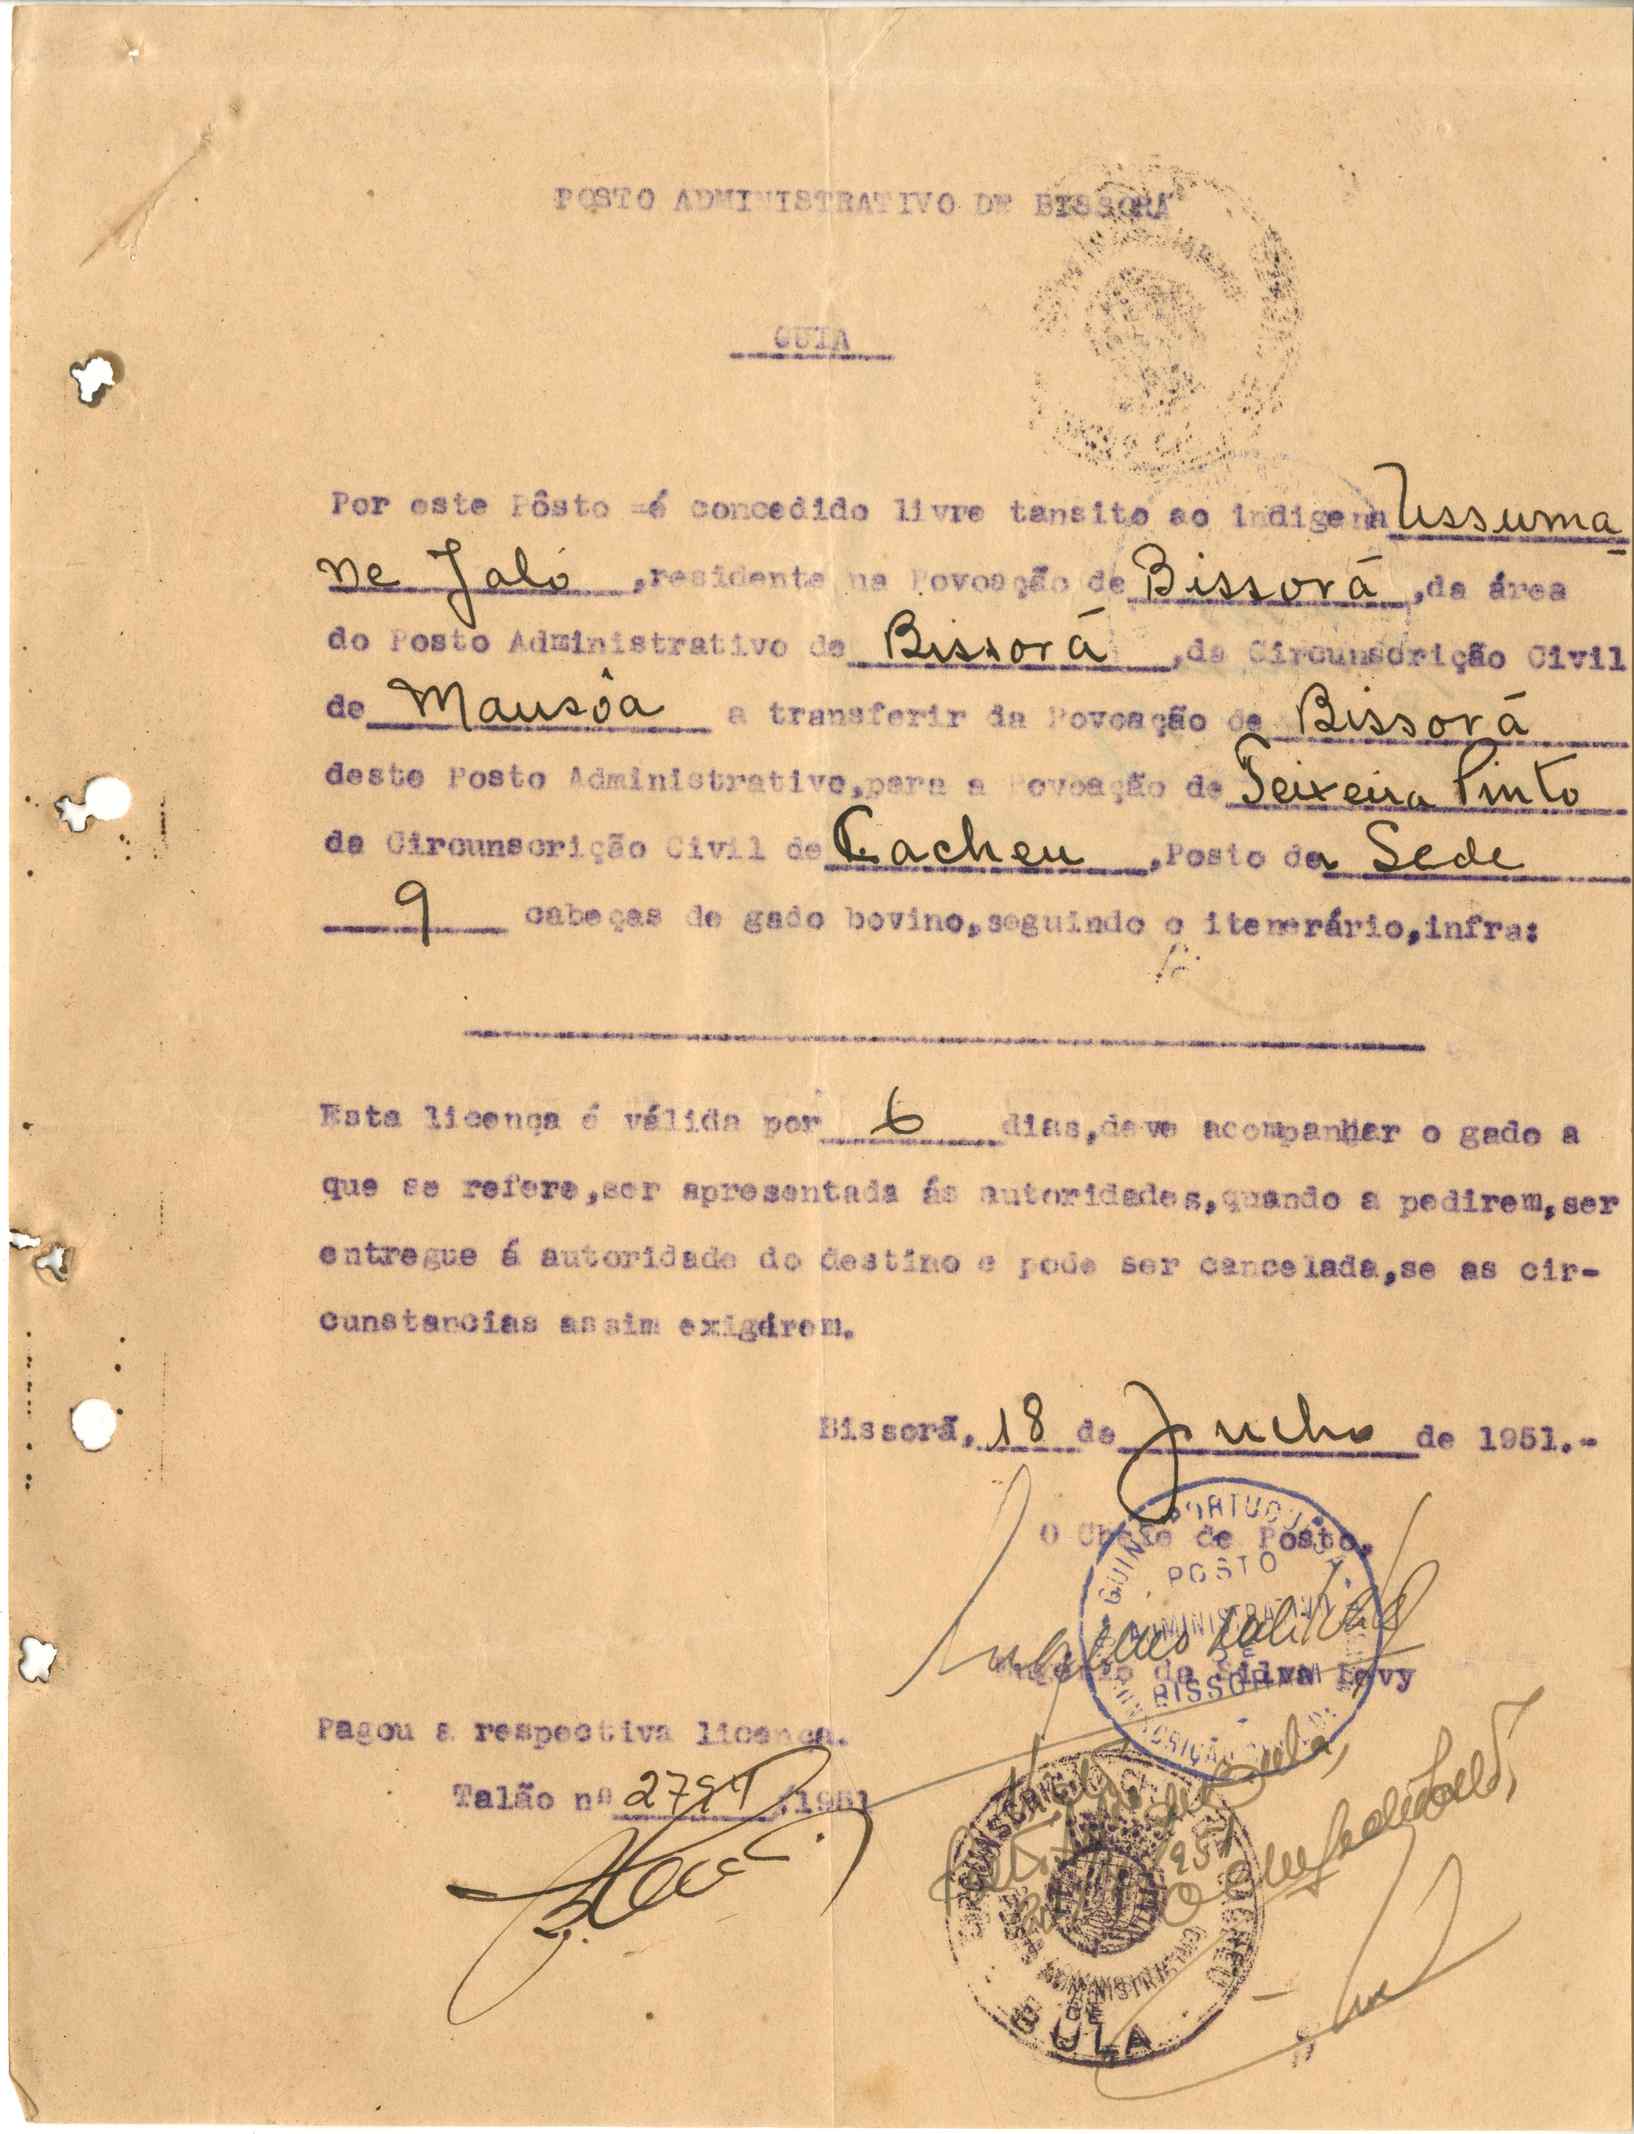 POSTO ADMINISTRATIVO DE BISSORÃ
GUIA
Por este Pôsto =é concedido livre tansito ao indigena Ussuma-
ne Jaló ,residente na Povoação de Bissorã ,da área
do Posto Administrativo de Bissorã ,da Circunscrição Civil
de Mansôa a transferir da Povoação de Bissorã
deste Posto Administrativo,para a Povoação de Teixeira Pinto
da Circunscrição Civil de Cacheu ,Posto da Sede
9 cabeças de gado bovino,seguindo o itenerário,infra:
Esta licença é válida por 6 dias,deve acompanhar o gado a
que se refere,ser apresentada ás autoridades,quando a pedirem,ser
entregue á autoridade do destino e pode ser cancelada,se as cir-
cunstancias assim exigirem.
Bissorã, 18 de Julho de 1951.-
O Chefe de Posto,
GUINÉ PORTUGUESA
POSTO
ADMINISTRATIVO
DE
BISSORÃ
da Silva Levy
Pagou a respectiva licença.
Talão nº /1951
Bula,
1951
CIRCUNSCRIÇÃO
ADMINISTRATIVO
DE
BULA